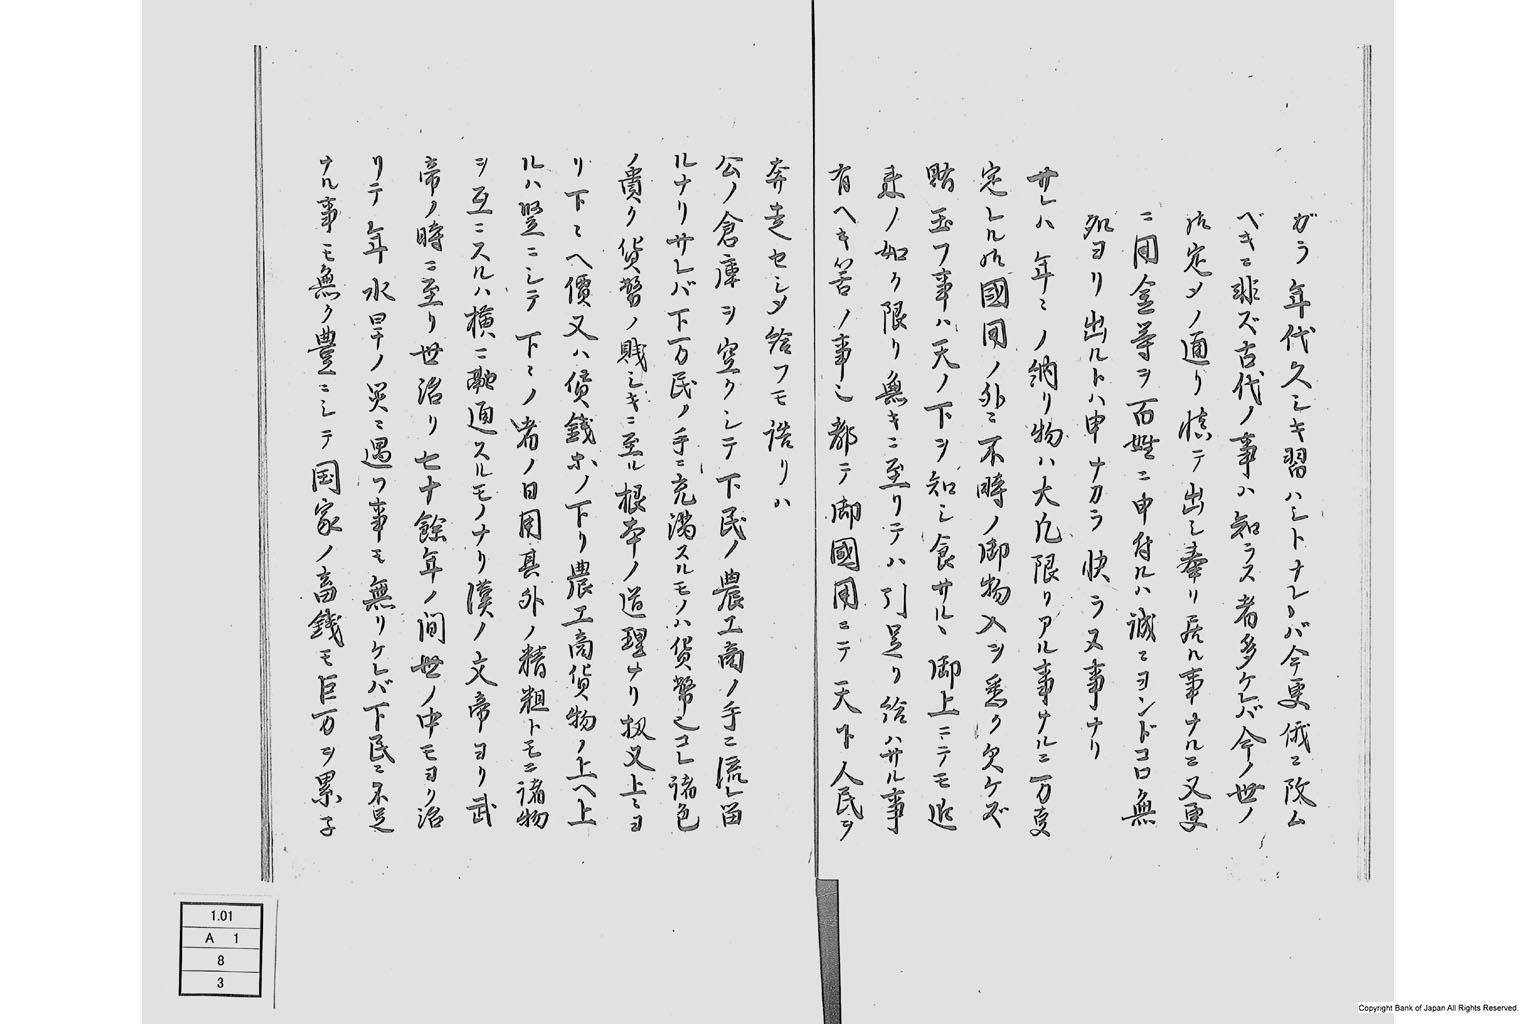 ガラ年代久シキ習ハシトナレバ今更俄ニ改ム
ベキニ非ズ古代ノ事ハ知ラス者多ケレバ今ノ世ノ
御定メノ通リ慎テ出シ奉リ居ル事ナルニ又更
ニ用金等ヲ百姓ニ申付ルハ誠ニヨンドコロ無
処ヨリ出ルトハ申ナカラ快ラヌ事ナリ
サレハ年ミノ納リ物ハ大凡限リアル事ナルニ万変
定レル御國用ノ外ニ不時ノ御物入ヲ悉ク欠ケズ
賄玉フ事ハ天ノ下ヲ知シ食サルヽ御上ニテモ
末ノ如ク限リ無キニ至リテハ引足リ給ハサル事
有ヘキ筈ノ事也都テ御國用ニテ天下人民ヲ
奔走セシメ給フモ詰リハ
公ノ倉庫ヲ空クシテ下民ノ農工商ノ手ニ流レ留
ルナリサレバ下万民ノ手ニ充満スルモノハ貨幣也コレ諸色
ノ貴ク貨幣ノ賤シキニ至ル根本ノ道理ナリ扨又上ミヨ
リ下ミヘ價又ハ賃銭ホノ下リ農工商貨物ノ上ヘ上
ルハ竪ニシテ下ミノ者ノ日用其外ノ精粗トモニ諸物
ヲ互ニスルハ横ニ融通スルモノナリ漢ノ文帝ヨリ武
帝ノ時ニ至リ世治リ七十餘年ノ間世ノ中モヨク治
リテ年水旱ノ災ニ遇フ事モ無リケレバ下民ニ不足
ナル事モ無ク豊ニシテ国家ノ畜銭モ巨万ヲ累子
1.01
A 1
8
3
Copyright Bank of Japan All Rights Reserved.